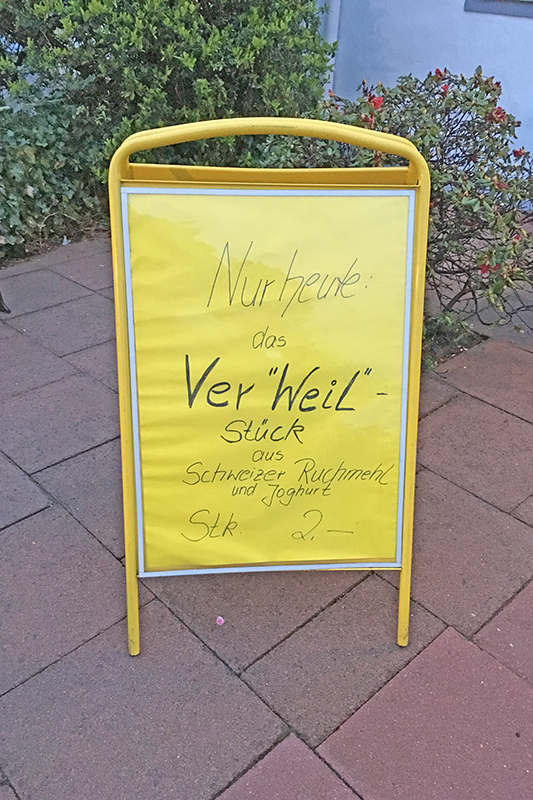 Nur heute:
das
Ver "Weil"-
Stück
aus
Schweizer Ruchmehl
und Joghurt
Stk. 2,-